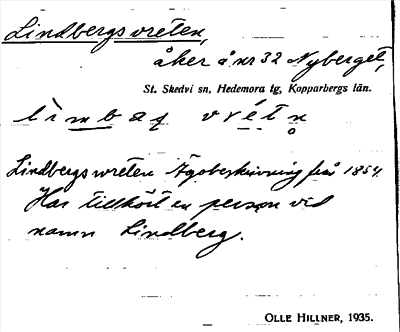 Lindbergsvreten,
åker å nr 32 Nyberget,
St. Skedvi sn, Hedemora tg, Kopparbergs län.
lìmbaṣ vrétn̥
Lindbergsvreten Ägobeskrivning från 1854
Har tillhört en person vid
namn Lindberg.
OLLE HILLNER, 1935.